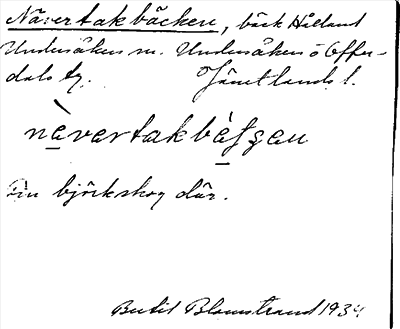 Nävertakbäcken, bäck Hålland
Undersåkers sn. Undersåkers o Offer-
dals tg. Jämtlands l.
nàvertakbèʃʒen
Fin björkskog där.
Bertil Blomstrand 1934